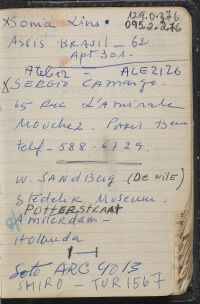 Soma Lins.
129.0.276
092.2.276
Assis BRASIL - 62
Apt 301.
Atelier - ALE2126
X SERGIO Camargo.
65 Rue L'Amirale
Mouchez. Paris
telf - 588-6729.
W. SANDBERG (DE WILE)
Stedelik Museum -
POTTERSTRAAT
Amsterdam -
Holanda
Soto ARC 4013
SHIRO - TUR 1567